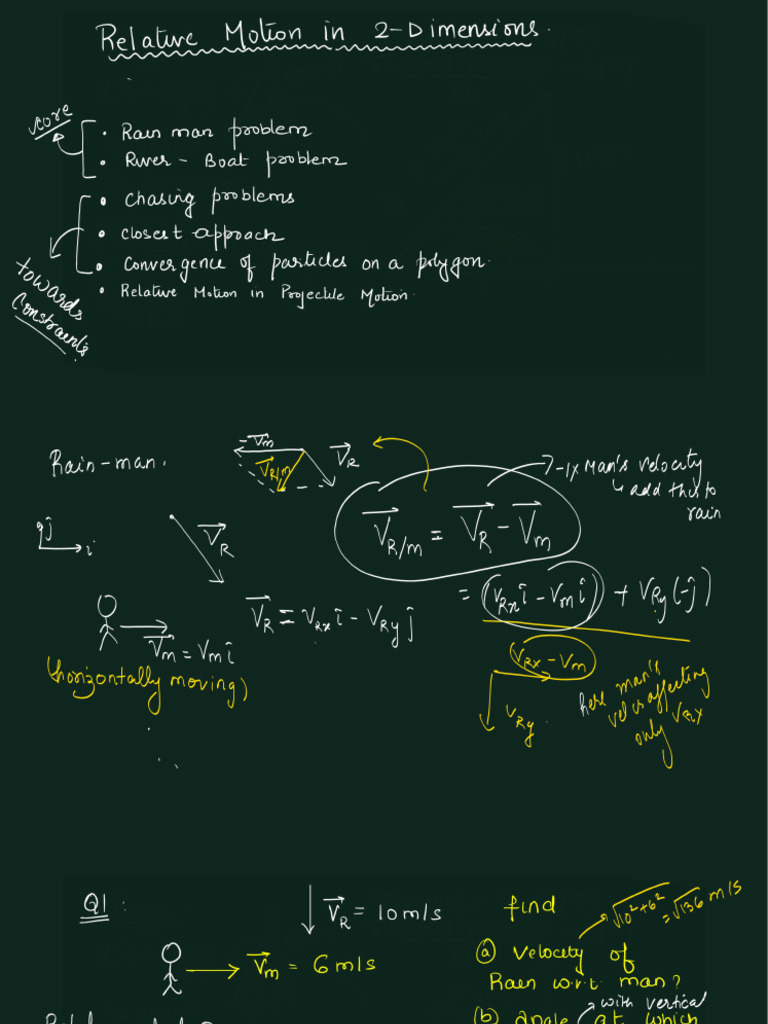 Relative Motion in 2-Dimensions.
core
• Rain man problem
• River - Boat problem
• chasing problems
• closest approach
• Convergence of particles on a polygon.
• Relative Motion in Projectile Motion.
towards
Constraints.
Rain-man.
-V⃗m
V⃗R/m
V⃗R
-1x Man's velocity
↳ add this to
rain
V⃗R/m = V⃗R - V⃗m
ĵ
i
V⃗R
= (VRx î - Vm î) + VRy(-ĵ)
V⃗R = VRx î - VRy ĵ
V⃗m = Vm î
(horizontally moving)
VRx - Vm
VRy.
here man's
vel is affecting
only VRx
Q1 :
V⃗R = 10 m/s
V⃗m = 6 m/s
find
√10²+6² = √136 m/s
(a) Velocity of
Rain w.r.t man?
with vertical
(b) angle at which